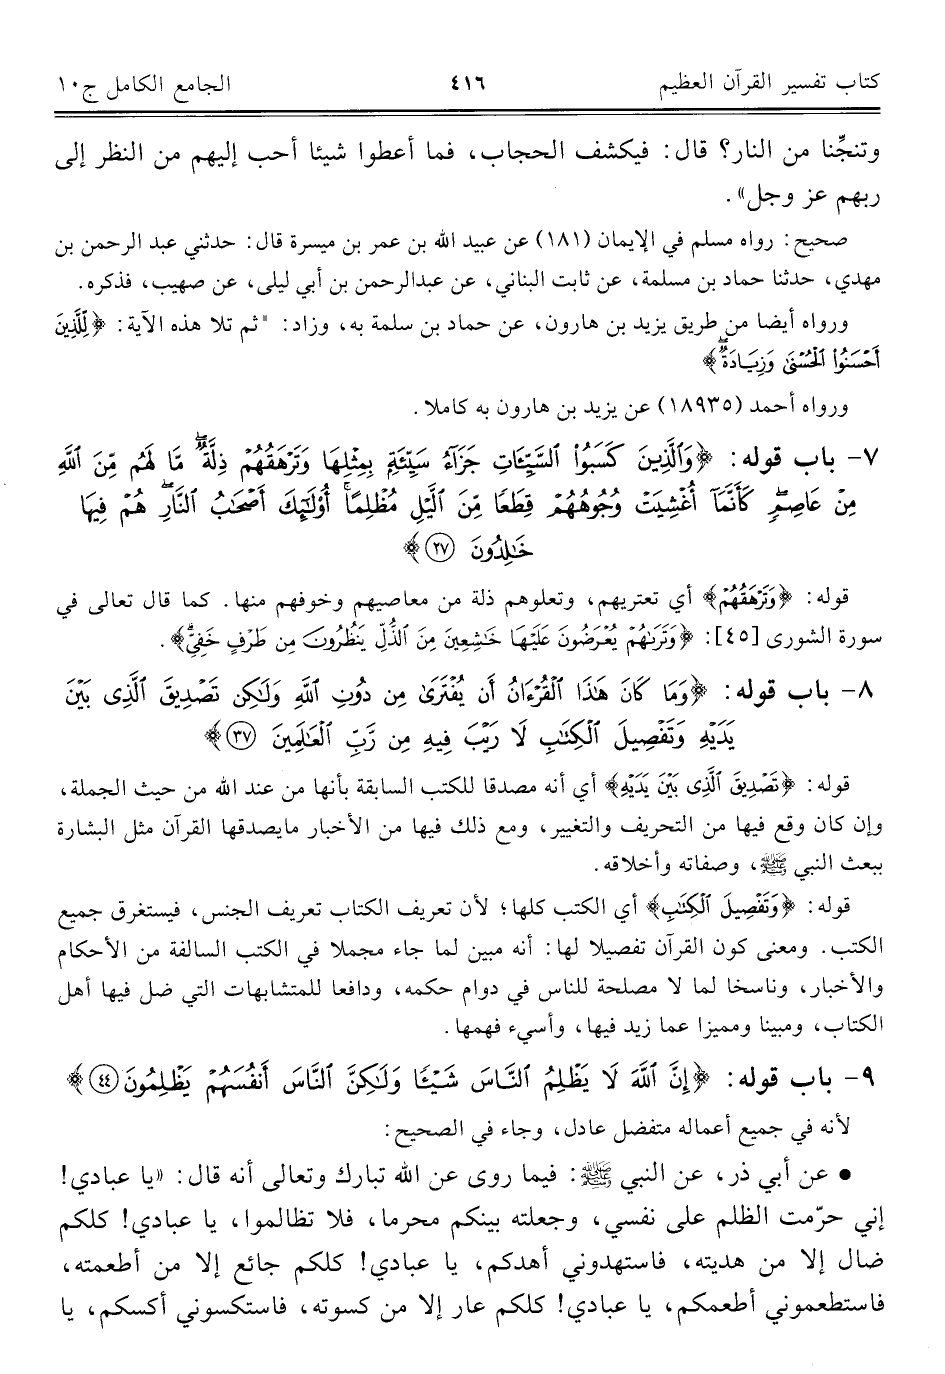 كتاب تفسير القرآن العظيم ٤١٦ الجامع الكامل ج١٠
وتنجِّنا من النار؟ قال: فيكشف الحجاب، فما أعطوا شيئا أحب إليهم من النظر إلى
ربهم عز وجل».
صحيح: رواه مسلم في الإيمان (١٨١) عن عبيد الله بن عمر بن ميسرة قال: حدثني عبد الرحمن بن
مهدي، حدثنا حماد بن مسلمة، عن ثابت البناني، عن عبدالرحمن بن أبي ليلى، عن صهيب، فذكره.
ورواه أيضا من طريق يزيد بن هارون، عن حماد بن سلمة به، وزاد: "ثم تلا هذه الآية: ﴿لِّلَّذِينَ
أَحْسَنُوا۟ ٱلْحُسْنَىٰ وَزِيَادَةٌ ۖ﴾
ورواه أحمد (١٨٩٣٥) عن يزيد بن هارون به كاملا.
٧- باب قوله: ﴿وَٱلَّذِينَ كَسَبُوا۟ ٱلسَّيِّـَٔاتِ جَزَآءُ سَيِّئَةٍۭ بِمِثْلِهَا وَتَرْهَقُهُمْ ذِلَّةٌ ۖ مَّا لَهُم مِّنَ ٱللَّهِ
مِنْ عَاصِمٍ ۖ كَأَنَّمَآ أُغْشِيَتْ وُجُوهُهُمْ قِطَعًا مِّنَ ٱلَّيْلِ مُظْلِمًا ۚ أُو۟لَـٰٓئِكَ أَصْحَـٰبُ ٱلنَّارِ ۖ هُمْ فِيهَا
خَـٰلِدُونَ ٢٧﴾
قوله: ﴿وَتَرْهَقُهُمْ﴾ أي تعتريهم، وتعلوهم ذلة من معاصيهم وخوفهم منها. كما قال تعالى في
سورة الشورى [٤٥]: ﴿وَتَرَىٰهُمْ يُعْرَضُونَ عَلَيْهَا خَـٰشِعِينَ مِنَ ٱلذُّلِّ يَنظُرُونَ مِن طَرْفٍ خَفِىٍّ﴾.
٨- باب قوله: ﴿وَمَا كَانَ هَـٰذَا ٱلْقُرْءَانُ أَن يُفْتَرَىٰ مِن دُونِ ٱللَّهِ وَلَـٰكِن تَصْدِيقَ ٱلَّذِى بَيْنَ
يَدَيْهِ وَتَفْصِيلَ ٱلْكِتَـٰبِ لَا رَيْبَ فِيهِ مِن رَّبِّ ٱلْعَـٰلَمِينَ ٣٧﴾
قوله: ﴿تَصْدِيقَ ٱلَّذِى بَيْنَ يَدَيْهِ﴾ أي أنه مصدقا للكتب السابقة بأنها من عند الله من حيث الجملة،
وإن كان وقع فيها من التحريف والتغيير، ومع ذلك فيها من الأخبار مايصدقها القرآن مثل البشارة
ببعث النبي ﷺ، وصفاته وأخلاقه.
قوله: ﴿وَتَفْصِيلَ ٱلْكِتَـٰبِ﴾ أي الكتب كلها؛ لأن تعريف الكتاب تعريف الجنس، فيستغرق جميع
الكتب. ومعنى كون القرآن تفصيلا لها: أنه مبين لما جاء مجملا في الكتب السالفة من الأحكام
والأخبار، وناسخا لما لا مصلحة للناس في دوام حكمه، ودافعا للمتشابهات التي ضل فيها أهل
الكتاب، ومبينا ومميزا عما زيد فيها، وأسيء فهمها.
٩- باب قوله: ﴿إِنَّ ٱللَّهَ لَا يَظْلِمُ ٱلنَّاسَ شَيْـًٔا وَلَـٰكِنَّ ٱلنَّاسَ أَنفُسَهُمْ يَظْلِمُونَ ٤٤﴾
لأنه في جميع أعماله متفضل عادل، وجاء في الصحيح:
• عن أبي ذر، عن النبي ﷺ: فيما روى عن الله تبارك وتعالى أنه قال: «يا عبادي!
إني حرّمت الظلم على نفسي، وجعلته بينكم محرما، فلا تظالموا، يا عبادي! كلكم
ضال إلا من هديته، فاستهدوني أهدكم، يا عبادي! كلكم جائع إلا من أطعمته،
فاستطعموني أطعمكم، يا عبادي! كلكم عار إلا من كسوته، فاستكسوني أكسكم، يا